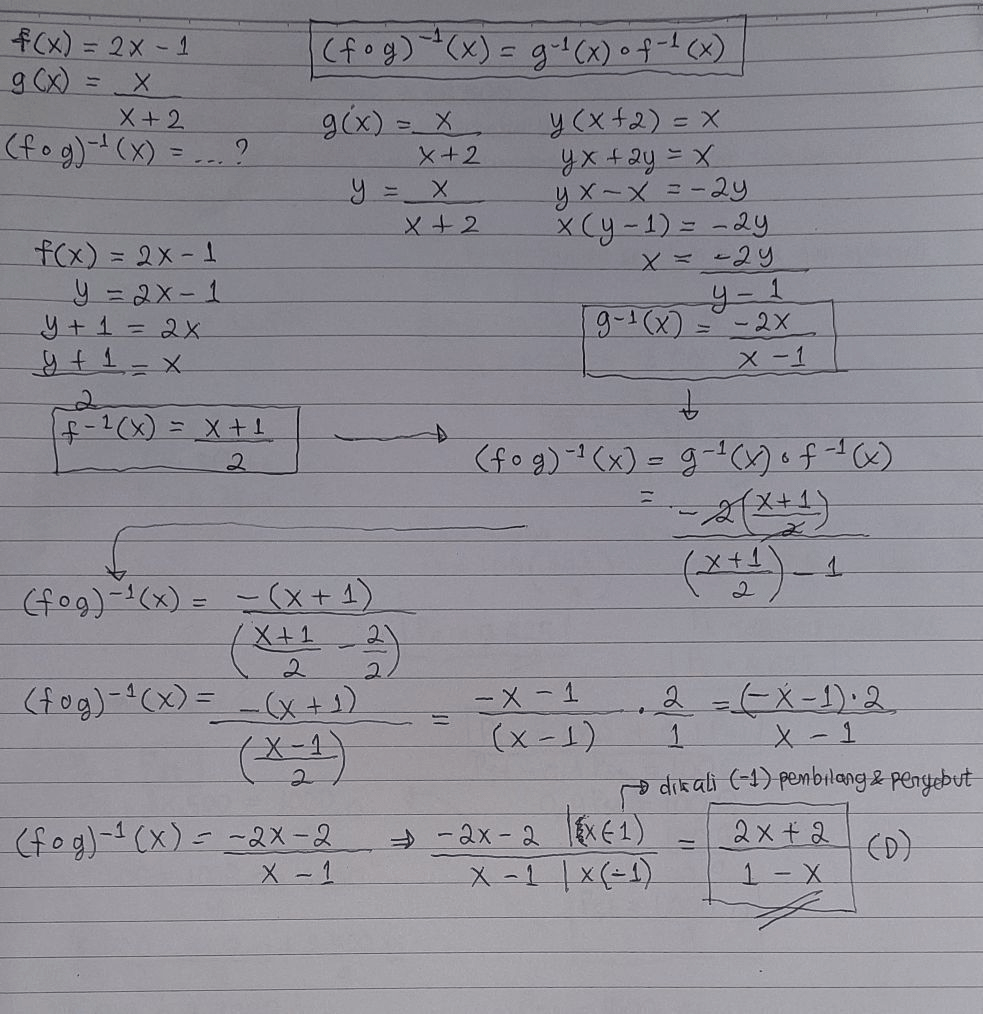 f(x) = 2x - 1
g(x) = x / x + 2
(f ∘ g)⁻¹(x) = .... ?
(f ∘ g)⁻¹(x) = g⁻¹(x) ∘ f⁻¹(x)
f(x) = 2x - 1
y = 2x - 1
y + 1 = 2x
y + 1 / 2 = x
f⁻¹(x) = x + 1 / 2
g(x) = x / x + 2
y = x / x + 2
y(x + 2) = x
yx + 2y = x
yx - x = -2y
x(y - 1) = -2y
x = -2y / y - 1
g⁻¹(x) = -2x / x - 1
(f ∘ g)⁻¹(x) = g⁻¹(x) ∘ f⁻¹(x)
= -2(x + 1 / 2) / (x + 1 / 2) - 1
(f ∘ g)⁻¹(x) = -(x + 1) / (x + 1 / 2 - 2 / 2)
(f ∘ g)⁻¹(x) = -(x + 1) / (x - 1 / 2) = -x - 1 / (x - 1) · 2 / 1 = (-x - 1) · 2 / x - 1
→ dikali (-1) pembilang & penyebut
(f ∘ g)⁻¹(x) = -2x - 2 / x - 1 ⇒ -2x - 2 / x - 1 | x(-1) | x(-1) = 2x + 2 / 1 - x (D)